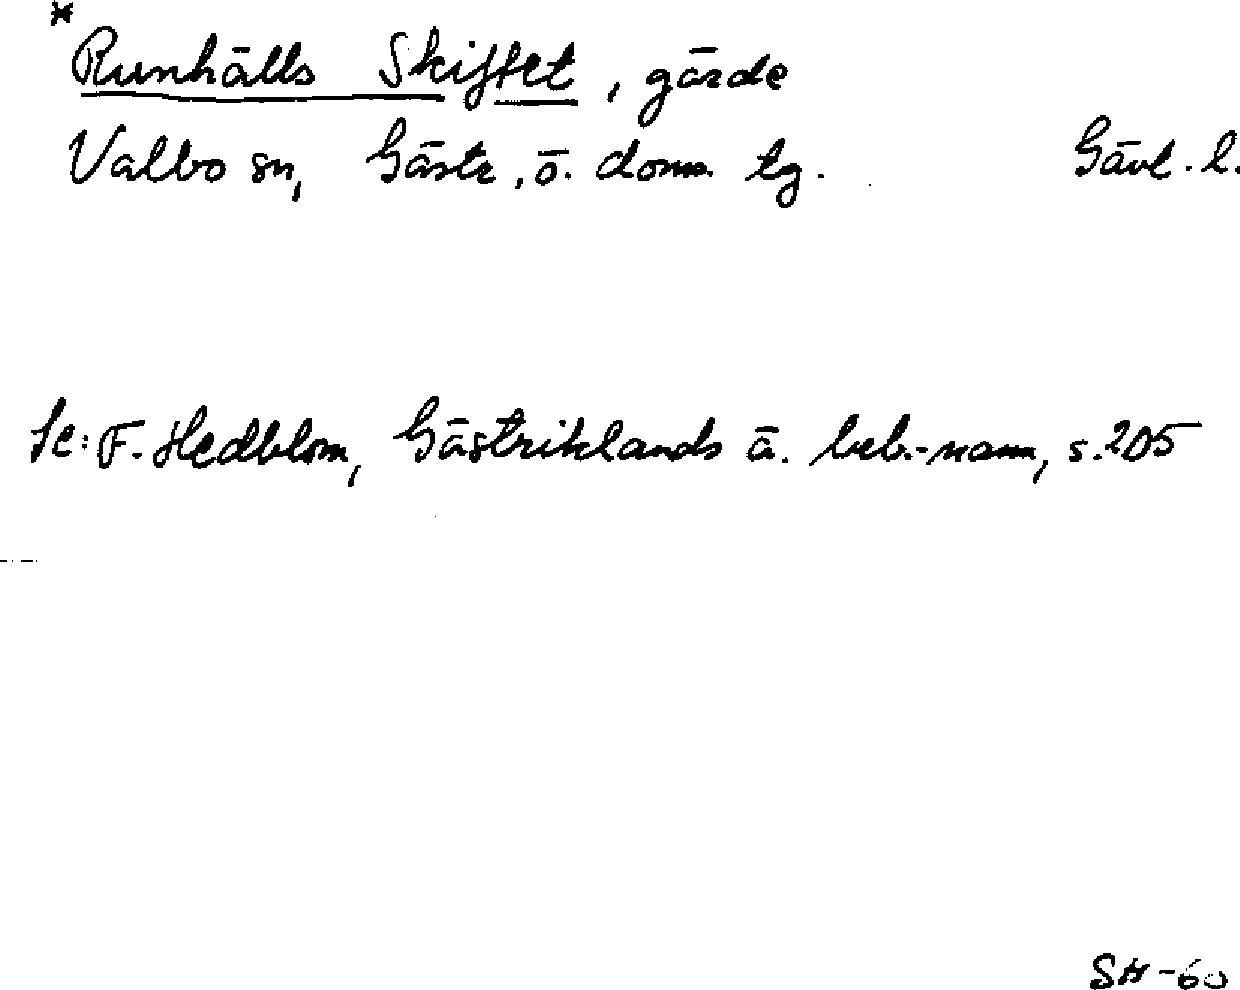 *Runhälls Skiftet, gärde
Valbo sn, Gästr. ö. doms. tg. Gävl. l.
Se: F. Hedblom, Gästriklands ä. beb.-namn, s. 205
SH-60